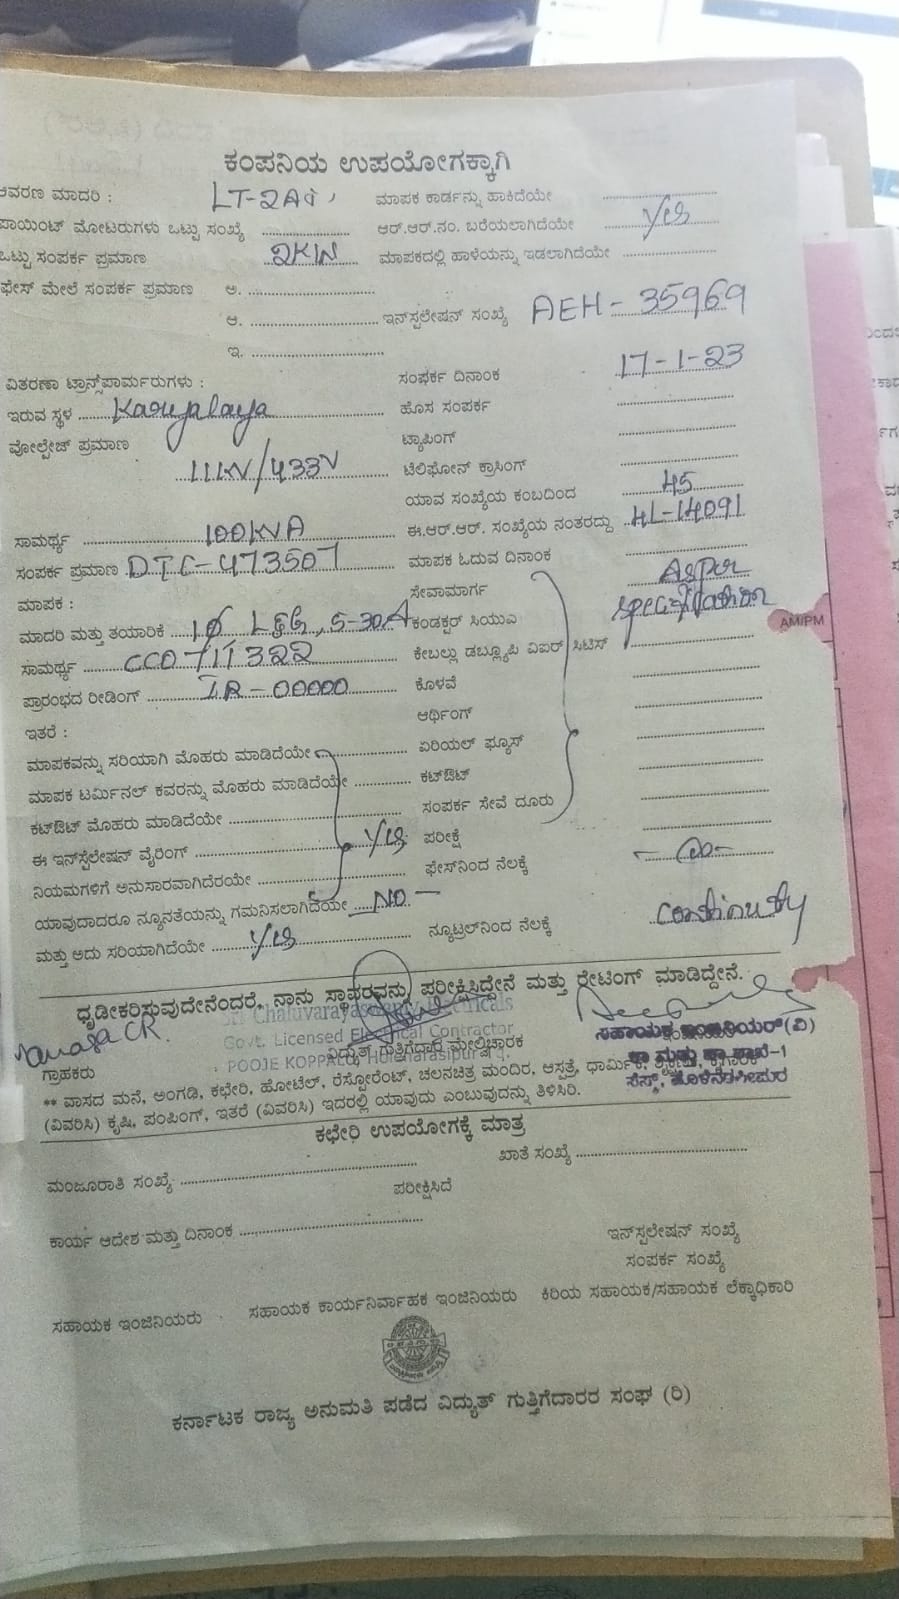 ಕಂಪನಿಯ ಉಪಯೋಗಕ್ಕಾಗಿ
ಆವರಣ ಮಾದರಿ : LT-2A ಮಾಪಕ ಕಾರ್ಡನ್ನು ಹಾಕಿದೆಯೇ
ಪಾಯಿಂಟ್ ಮೋಟರುಗಳು ಒಟ್ಟು ಸಂಖ್ಯೆ ಆರ್.ಆರ್.ನಂ. ಬರೆಯಲಾಗಿದೆಯೇ Yes
ಒಟ್ಟು ಸಂಪರ್ಕ ಪ್ರಮಾಣ 2KW ಮಾಪಕದಲ್ಲಿ ಹಾಳೆಯನ್ನು ಇಡಲಾಗಿದೆಯೇ
ಫೇಸ್ ಮೇಲೆ ಸಂಪರ್ಕ ಪ್ರಮಾಣ ಅ.
ಆ. ಇನ್‌ಸ್ಟಲೇಷನ್ ಸಂಖ್ಯೆ AEH-35969
ಇ.
ವಿತರಣಾ ಟ್ರಾನ್ಸ್‌ಪಾರ್ಮರುಗಳು : ಸಂಪರ್ಕ ದಿನಾಂಕ 17-1-23
ಇರುವ ಸ್ಥಳ ಹೊಸ ಸಂಪರ್ಕ
ವೋಲ್ಟೇಜ್ ಪ್ರಮಾಣ ಟ್ಯಾಪಿಂಗ್
11KV/433V ಟೆಲಿಫೋನ್ ಕ್ರಾಸಿಂಗ್
ಯಾವ ಸಂಖ್ಯೆಯ ಕಂಬದಿಂದ 45
ಸಾಮರ್ಥ್ಯ 100KVA ಈ.ಆರ್.ಆರ್. ಸಂಖ್ಯೆಯ ನಂತರದ್ದು HL-14091
ಸಂಪರ್ಕ ಪ್ರಮಾಣ DTC-473507 ಮಾಪಕ ಓದುವ ದಿನಾಂಕ
ಮಾಪಕ : ಸೇವಾಮಾರ್ಗ As per
ಮಾದರಿ ಮತ್ತು ತಯಾರಿಕೆ 1Ø L&G, 5-30A ಕಂಡಕ್ಟರ್ ಸಿಯುಎ specification
ಸಾಮರ್ಥ್ಯ ಕೇಬಲ್ಲು ಡಬ್ಲ್ಯೂಪಿ ವಿಐರ್ ಸಿಟಿಸ್ AM/PM
ಪ್ರಾರಂಭದ ರೀಡಿಂಗ್ IR-00000 ಕೊಳವೆ
ಇತರೆ : ಆರ್ಥಿಂಗ್
ಮಾಪಕವನ್ನು ಸರಿಯಾಗಿ ಮೊಹರು ಮಾಡಿದೆಯೇ ಏರಿಯಲ್ ಫ್ಯೂಸ್
ಮಾಪಕ ಟರ್ಮಿನಲ್ ಕವರನ್ನು ಮೊಹರು ಮಾಡಿದೆಯೇ ಕಟ್‌ಔಟ್
ಕಟ್‌ಔಟ್ ಮೊಹರು ಮಾಡಿದೆಯೇ ಸಂಪರ್ಕ ಸೇವೆ ದೂರು
ಈ ಇನ್‌ಸ್ಟೆಲೇಷನ್ ವೈರಿಂಗ್ Yes ಪರೀಕ್ಷೆ
ನಿಯಮಗಳಿಗೆ ಅನುಸಾರವಾಗಿದೆರಯೇ ಫೇಸ್‌ನಿಂದ ನೆಲಕ್ಕೆ
ಯಾವುದಾದರೂ ನ್ಯೂನತೆಯನ್ನು ಗಮನಿಸಲಾಗಿದೆಯೇ NO
ಮತ್ತು ಅದು ಸರಿಯಾಗಿದೆಯೇ Yes ನ್ಯೂಟ್ರಲ್‌ನಿಂದ ನೆಲಕ್ಕೆ continuty
ಧೃಡೀಕರಿಸುವುದೇನೆಂದರೆ, ನಾನು ಸ್ಥಾವರವನ್ನು ಪರೀಕ್ಷಿಸಿದ್ದೇನೆ ಮತ್ತು ರೇಟಿಂಗ್ ಮಾಡಿದ್ದೇನೆ.
Govt. Licensed Electrical Contractor
ಸಹಾಯಕ ಇಂಜಿನಿಯರ್(ವಿ)
ವಿದ್ಯುತ್ ಗುತ್ತಿಗೆದಾರ ಮೇಲ್ವಿಚಾರಕ
POOJE KOPPALU, Holenarasipura
ಗ್ರಾಹಕರು
ಸೆಸ್ಕ್, ಹೊಳೆನರಸೀಪುರ
** ವಾಸದ ಮನೆ, ಅಂಗಡಿ, ಕಛೇರಿ, ಹೋಟೆಲ್, ರೆಸ್ಟೋರೆಂಟ್, ಚಲನಚಿತ್ರ ಮಂದಿರ, ಆಸ್ಪತ್ರೆ, ಧಾರ್ಮಿಕ,
(ವಿವರಿಸಿ) ಕೃಷಿ, ಪಂಪಿಂಗ್, ಇತರೆ (ವಿವರಿಸಿ) ಇದರಲ್ಲಿ ಯಾವುದು ಎಂಬುವುದನ್ನು ತಿಳಿಸಿರಿ.
ಕಛೇರಿ ಉಪಯೋಗಕ್ಕೆ ಮಾತ್ರ
ಮಂಜೂರಾತಿ ಸಂಖ್ಯೆ ಖಾತೆ ಸಂಖ್ಯೆ
ಪರೀಕ್ಷಿಸಿದೆ
ಕಾರ್ಯ ಆದೇಶ ಮತ್ತು ದಿನಾಂಕ
ಇನ್‌ಸ್ಟಲೇಷನ್ ಸಂಖ್ಯೆ
ಸಂಪರ್ಕ ಸಂಖ್ಯೆ
ಸಹಾಯಕ ಇಂಜಿನಿಯರು ಸಹಾಯಕ ಕಾರ್ಯನಿರ್ವಾಹಕ ಇಂಜಿನಿಯರು ಕಿರಿಯ ಸಹಾಯಕ/ಸಹಾಯಕ ಲೆಕ್ಕಾಧಿಕಾರಿ
ಕರ್ನಾಟಕ ರಾಜ್ಯ ಅನುಮತಿ ಪಡೆದ ವಿದ್ಯುತ್ ಗುತ್ತಿಗೆದಾರರ ಸಂಘ (ರಿ)